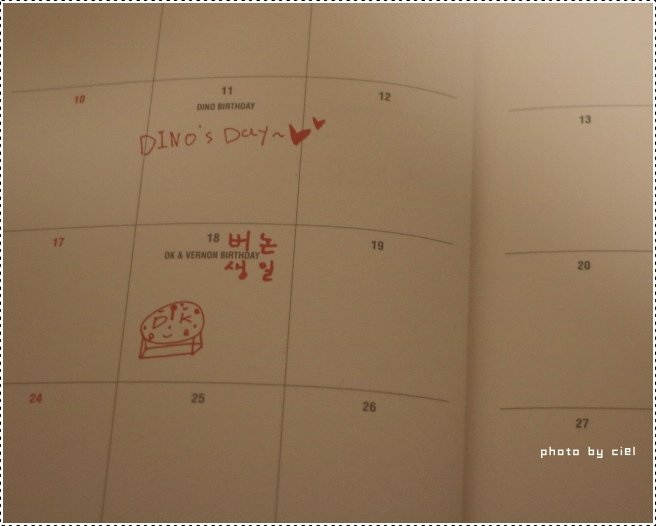 10
11
12
DINO BIRTHDAY
DINO's Day~
13
17
18
19
20
DK & VERNON BIRTHDAY
버논
생일
DK
24
25
26
27
photo by ciel